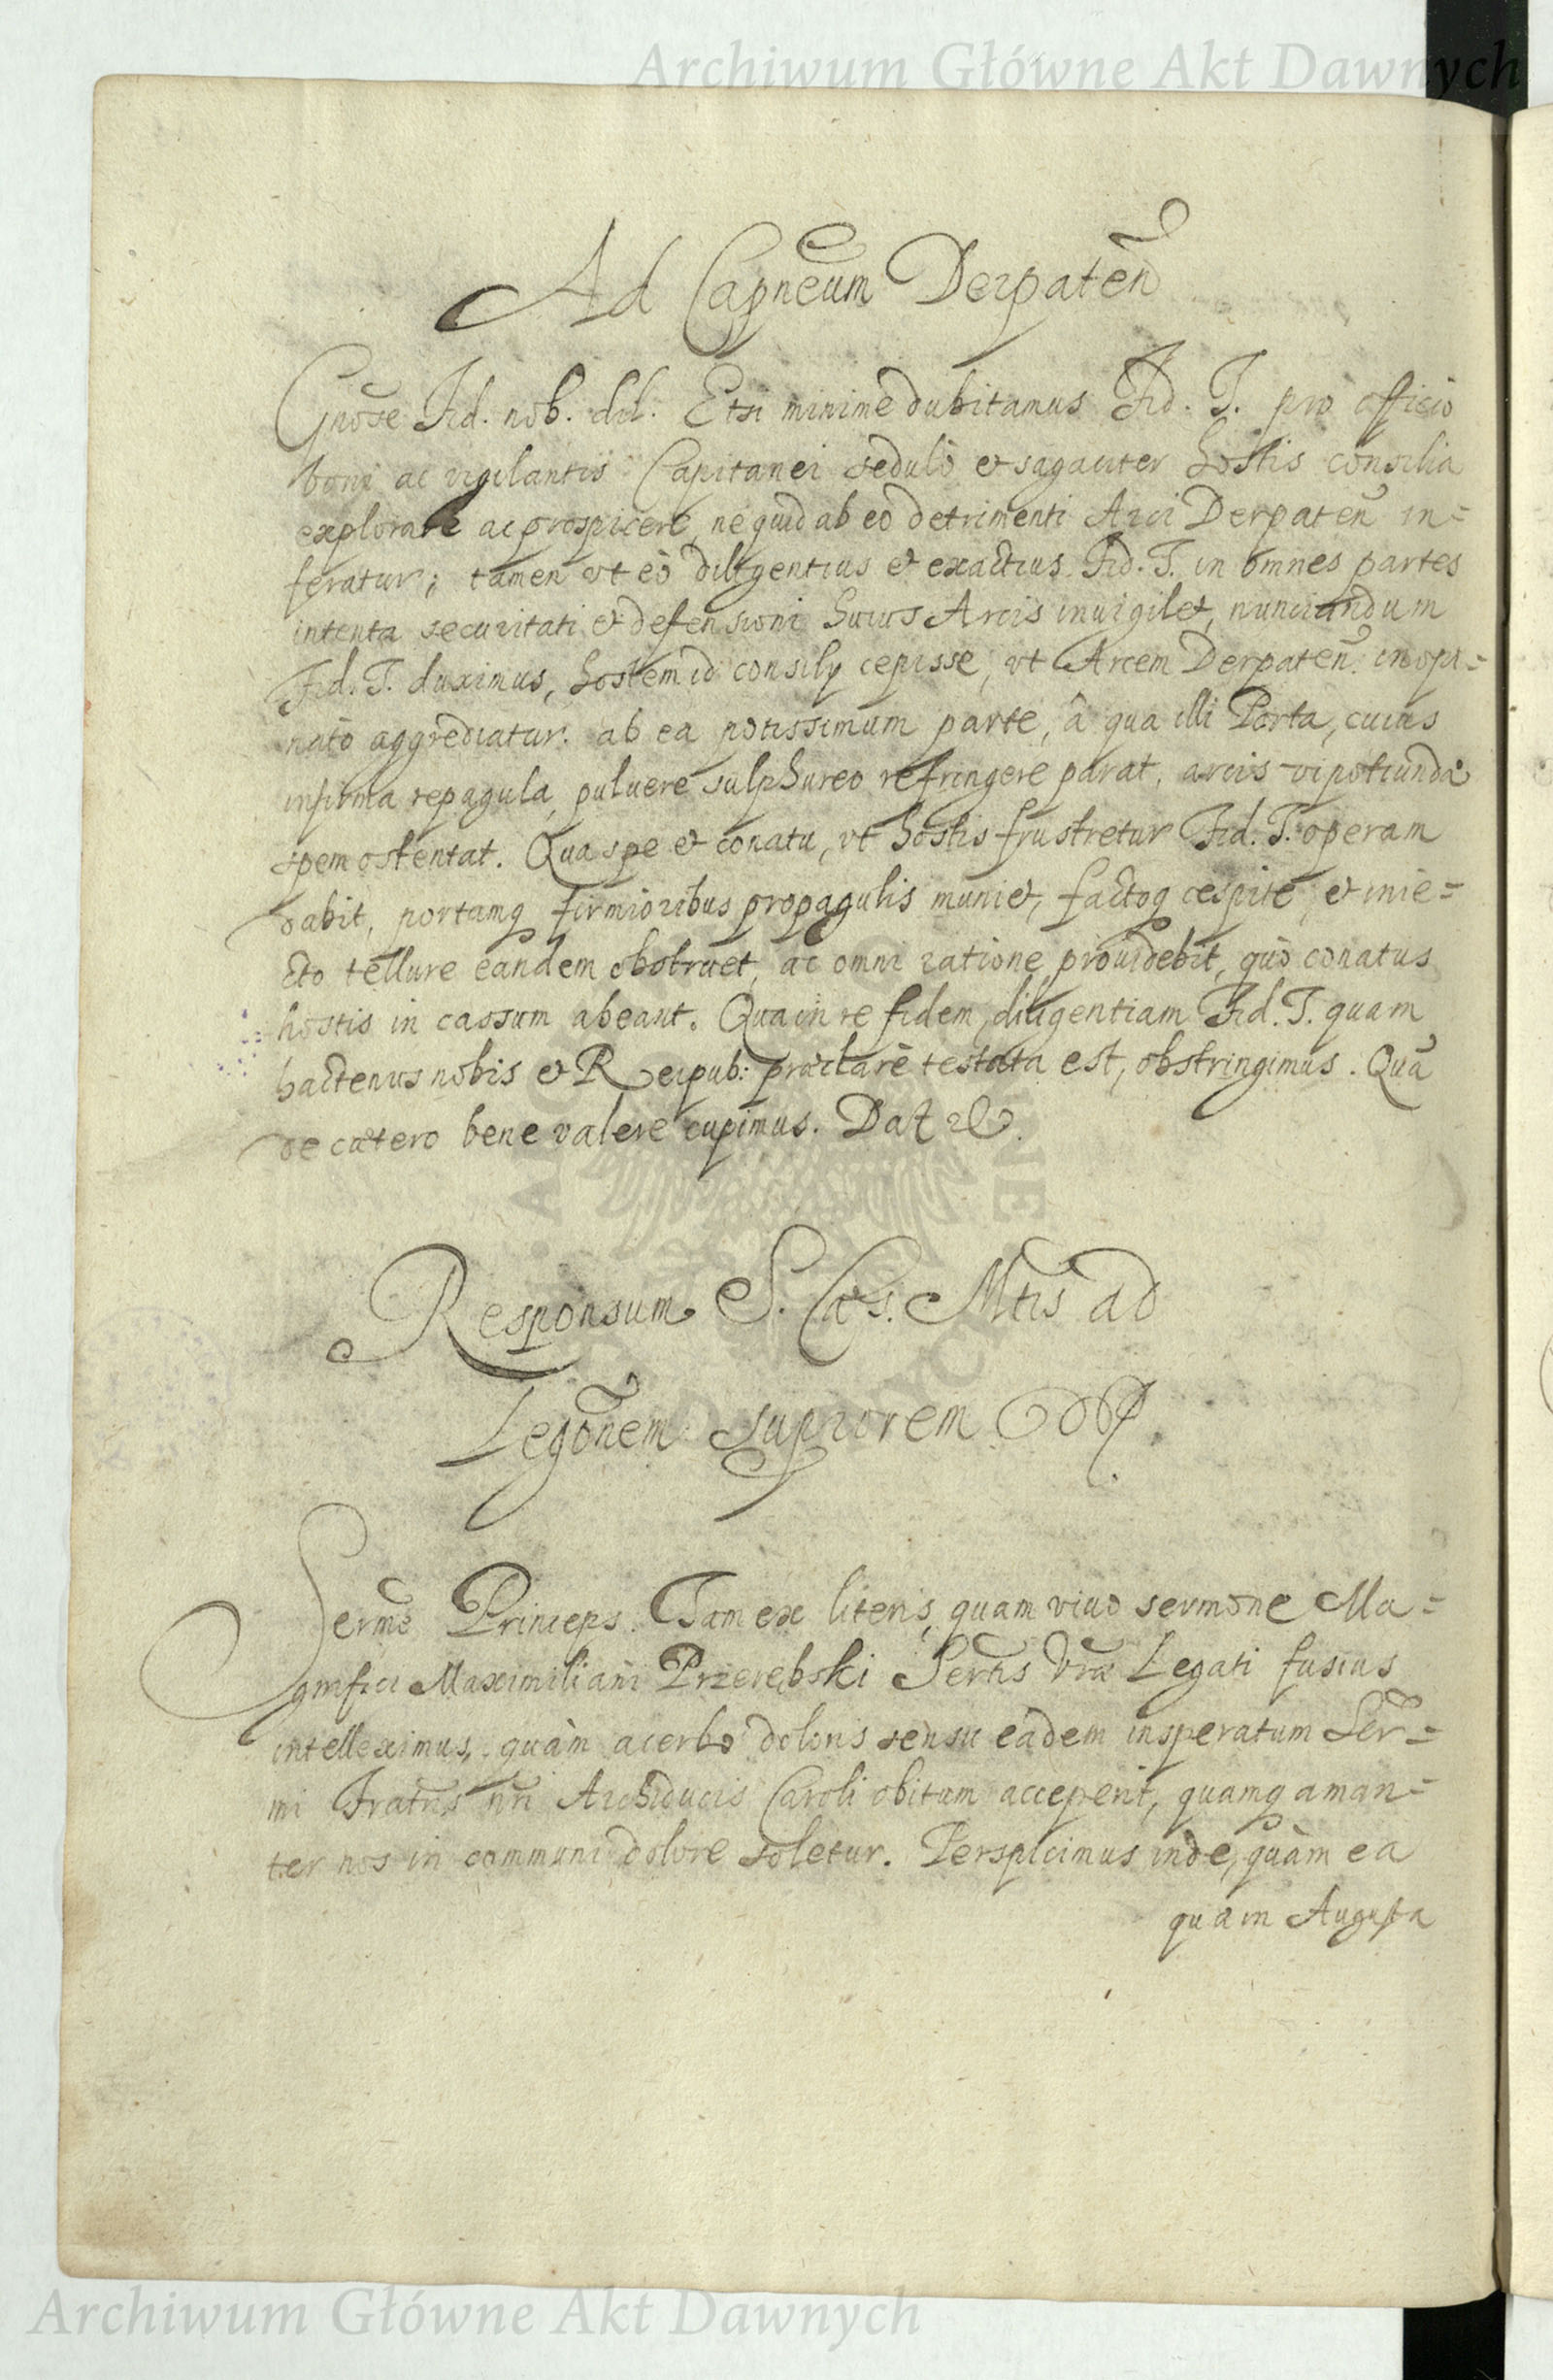 Archiwum Główne Akt Dawnych
Ad Capneum Derpateñ
Gnose Fid. nob. dil. Etsi minime dubitamus Fid. T. pro officio
boni ac vigilantis Capitanei sedulò et sagaciter hostis consilia
explorare ac prospicere, ne quid ab eo detrimenti Arci Derpateñ in=
feratur; tamen vt eò diligentius et exactius Fid. T. in omnes partes
intenta securitati et defensioni huius Arcis inuigilet, nunciandum
Fid. T. duximus, hostem id consilij cepisse, vt Arcem Derpateñ. inopi=
natò aggrediatur. ab ea potissimum parte, à qua illi Porta, cuius
infirma repagula, puluere sulphureo refringere parat, arcis vi potiundæ
spem ostentat. Qua spe et conatu, vt hostis frustretur Fid. T. operam
dabit, portamq firmioribus propagulis muniet, factoq cespite, et inie=
cto tellure eandem obstruet, ac omni ratione prouidebit, quò conatus
hostis in cassum abeant. Qua in re fidem, diligentiam Fid. T. quam
hactenus nobis et Reipub: præclarè testata est, obstringimus. Quã
de cætero bene valere cupimus. Dat etc.
Responsum S. Cæs. Mtis ad
Legõnem supriorem
Sermè Princeps. Tam ex literis, quam viuo sermone Ma=
gnifici Maximiliani Przerębski Sertis Vræ Legati fusius
intelleximus, quàm acerbo doloris sensu eadem insperatum Ser=
mi Fratris nri Archiducis Caroli obitum acceperit, quamq aman=
ter nos in communi dolore soletur. Perspicimus inde, quàm ea
quam Augusta
Archiwum Główne Akt Dawnych